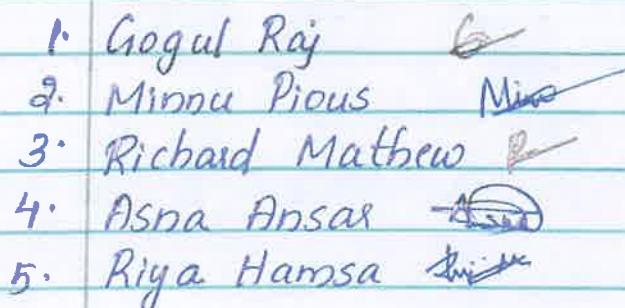 1. Gogul Raj
2. Minnu Pious
3. Richard Mathew
4. Asna Ansar
5. Riya Hamsa